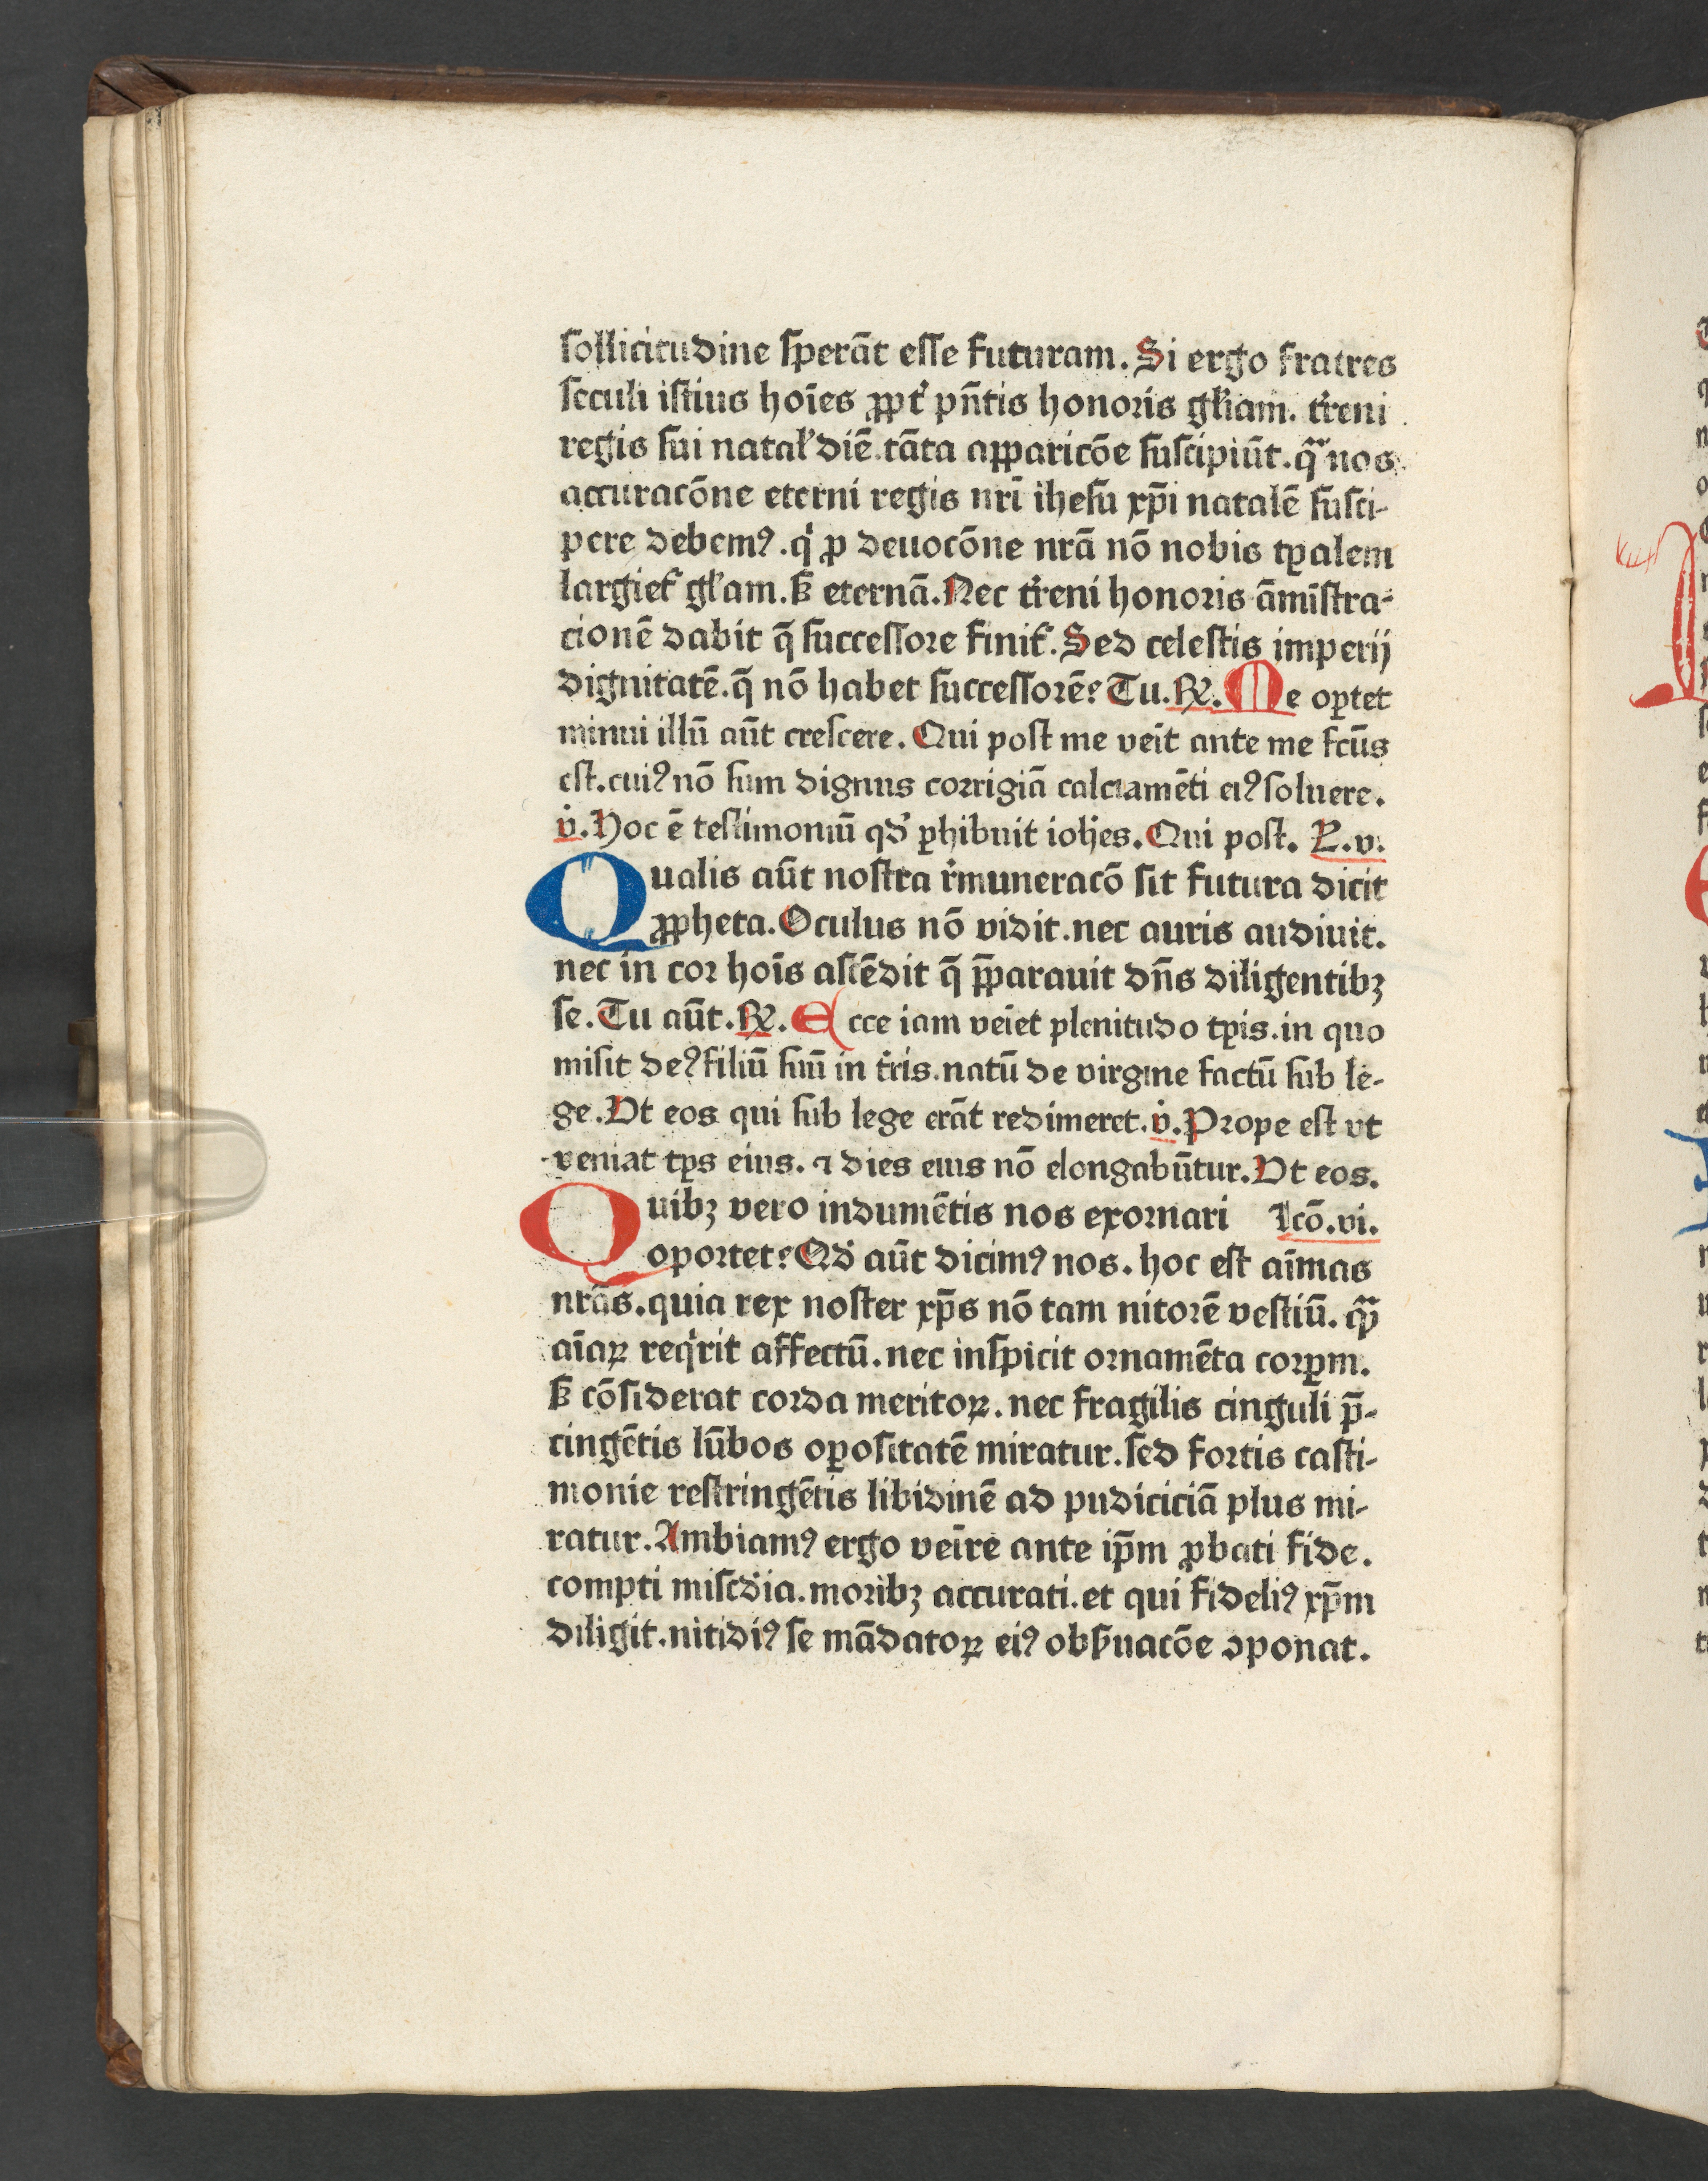 sollicitudine sperāt esse futuram. Si ergo fratres
seculi istius hoīes ꝓpt̾ pn̄tis honoris gl̾iam. t̾reni
regis sui natal̾ diē tāta apparicōe suscipiūt. qͣ nos
accuracōne eterni regis nr̄i ihesu xp̄i natalē susci-
pere debemꝰ. qͥ ꝓ deuocōne nrā nō nobis tꝑalem
largiet̾ gl̾am. sꝫ eternā. Nec t̾reni honoris āmīstra-
cionē dabit q̄ successore finit̾. Sed celestis imperij
dignitatē. q̄ nō habet successorē? Tu. ℟. Me oꝑtet
minui illū aūt crescere. Qui post me veīt ante me fcūs
est. cuiꝰ nō sum dignus corrigiā calciamēti eiꝰ soluere.
v̇. Hoc ē testimoniū qd̾ ꝑhibuit ioh̄es. Qui post. L. v.
Qualis aūt nostra r̾muneracō sit futura dicit
ꝓpheta. Oculus nō vidit. nec auris audiuit.
nec in cor hoīs ascēdit q̄ p̄parauit dn̄s diligentibꝫ
se. Tu aūt. ℟. Ecce iam veīet plenitudo tꝑis. in quo
misit deꝰ filiū suū in t̾ris. natū de virgine factū sub le-
ge. Vt eos qui sub lege erāt redimeret. v̇. Prope est vt
veniat tꝑs eius. ⁊ dies eius nō elongabūtur. Vt eos.
Quibꝫ vero indumētis nos exornari lcō. vi.
oportet? Qd̾ aūt dicimꝰ nos. hoc est aīmas
nrās. quia rex noster xp̄s nō tam nitorē vestiū. qͣꝫ
aīaꝝ reqͥrit affectū. nec inspicit ornamēta corꝑm.
sꝫ cōsiderat corda meritoꝝ. nec fragilis cinguli p̄-
cingētis lūbos oꝑositatē miratur. sed fortis casti-
monie restringētis libidinē ad pudiciciā plus mi-
ratur. Ambiamꝰ ergo veīre ante ip̄m ꝓbati fide.
compti misc̾dia. moribꝫ accurati. et qui fideliꝰ xp̄m
diligit. nitidiꝰ se mādatoꝝ eiꝰ obs̾uacōe ꝯponat.